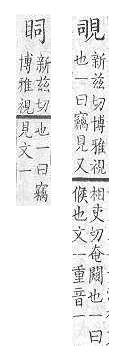 覗
新兹切博雅視
也一曰竊見又
相吏切奄也一曰
候也文一重音一
新兹切
博雅視
也一曰竊
見文一